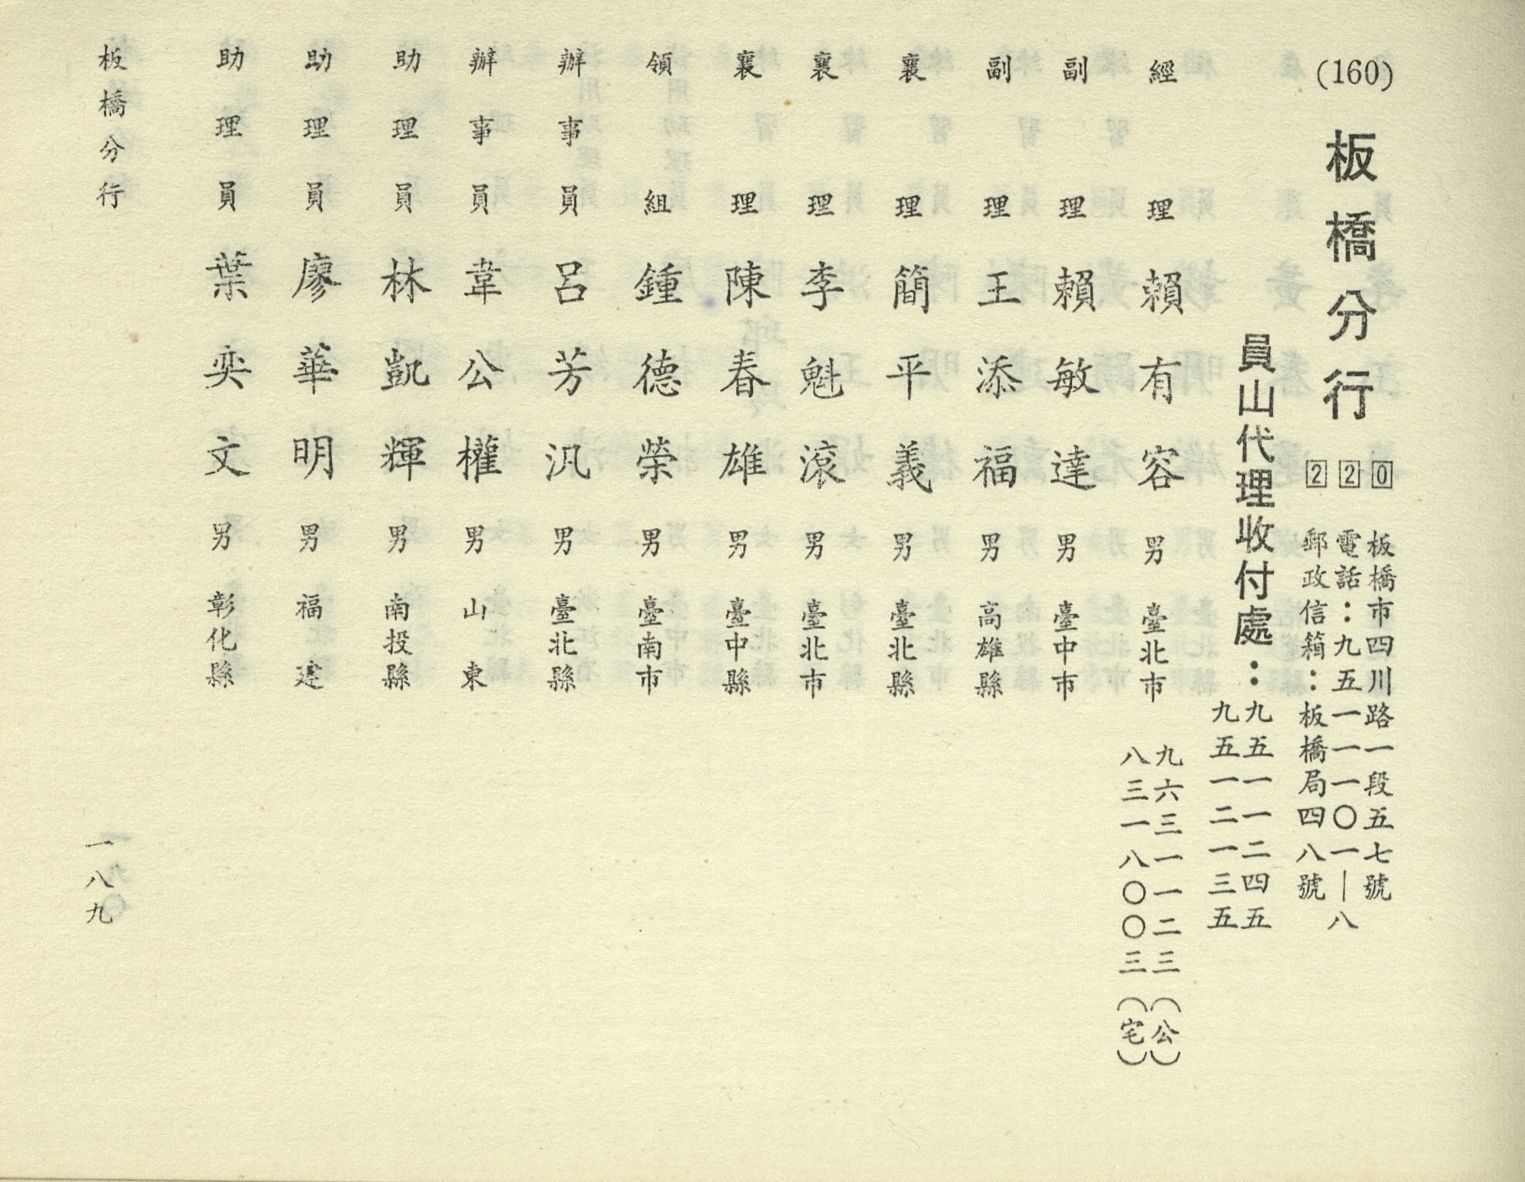 (160)
板橋分行
220
板橋市四川路一段五七號
電話：九五一一一〇一｜八
郵政信箱：板橋局四八號
員山代理收付處：
九五一一二四五
九五一二一三五
經理 賴有容 男 臺北市
九六三一一二三（公）
八三一八〇〇三（宅）
副理 賴敏達 男 臺中市
副理 王添福 男 高雄縣
襄理 簡平義 男 臺北縣
襄理 李魁滾 男 臺北市
襄理 陳春雄 男 臺中縣
領組 鍾德榮 男 臺南市
辦事員 呂芳汎 男 臺北縣
辦事員 韋公權 男 山東
助理員 林凱輝 男 南投縣
助理員 廖華明 男 福建
助理員 葉奕文 男 彰化縣
板橋分行
一八九